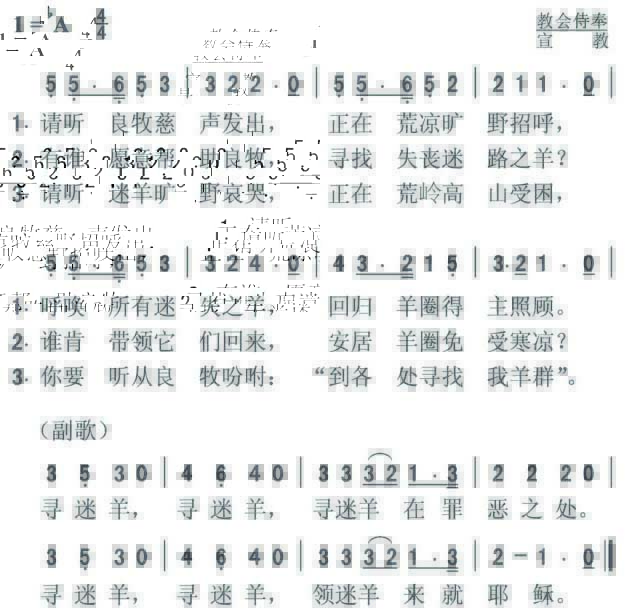 1=♭A 4/4
教会侍奉
宣 教
5 5 · 6 5 3 | 3 2 2 · 0 | 5 5 · 6 5 2 | 2 1 1 · 0 |
1. 请听 良牧慈 声发出， 正在 荒凉旷 野招呼，
2. 有谁 愿意帮 助良牧， 寻找 失丧迷 路之羊？
3. 请听 迷羊旷 野哀哭， 正在 荒岭高 山受困，
5 5 · 6 5 3 | 3 2 4 · 0 | 4 3 · 2 1 5 | 3 · 2 1 · 0 |
1. 呼唤 所有迷 失之羊， 回归 羊圈得 主照顾。
2. 谁肯 带领它 们回来， 安居 羊圈免 受寒凉？
3. 你要 听从良 牧吩咐： “到各 处寻找 我羊群”。
（副歌）
3 5 3 0 | 4 6 4 0 | 3 3 3 2 1 · 3 | 2 2 2 0 |
寻 迷 羊， 寻 迷 羊， 寻迷羊 在 罪 恶 之 处。
3 5 3 0 | 4 6 4 0 | 3 3 3 2 1 · 3 | 2 - 1 · 0 ‖
寻 迷 羊， 寻 迷 羊， 领迷羊 来 就 耶 稣。